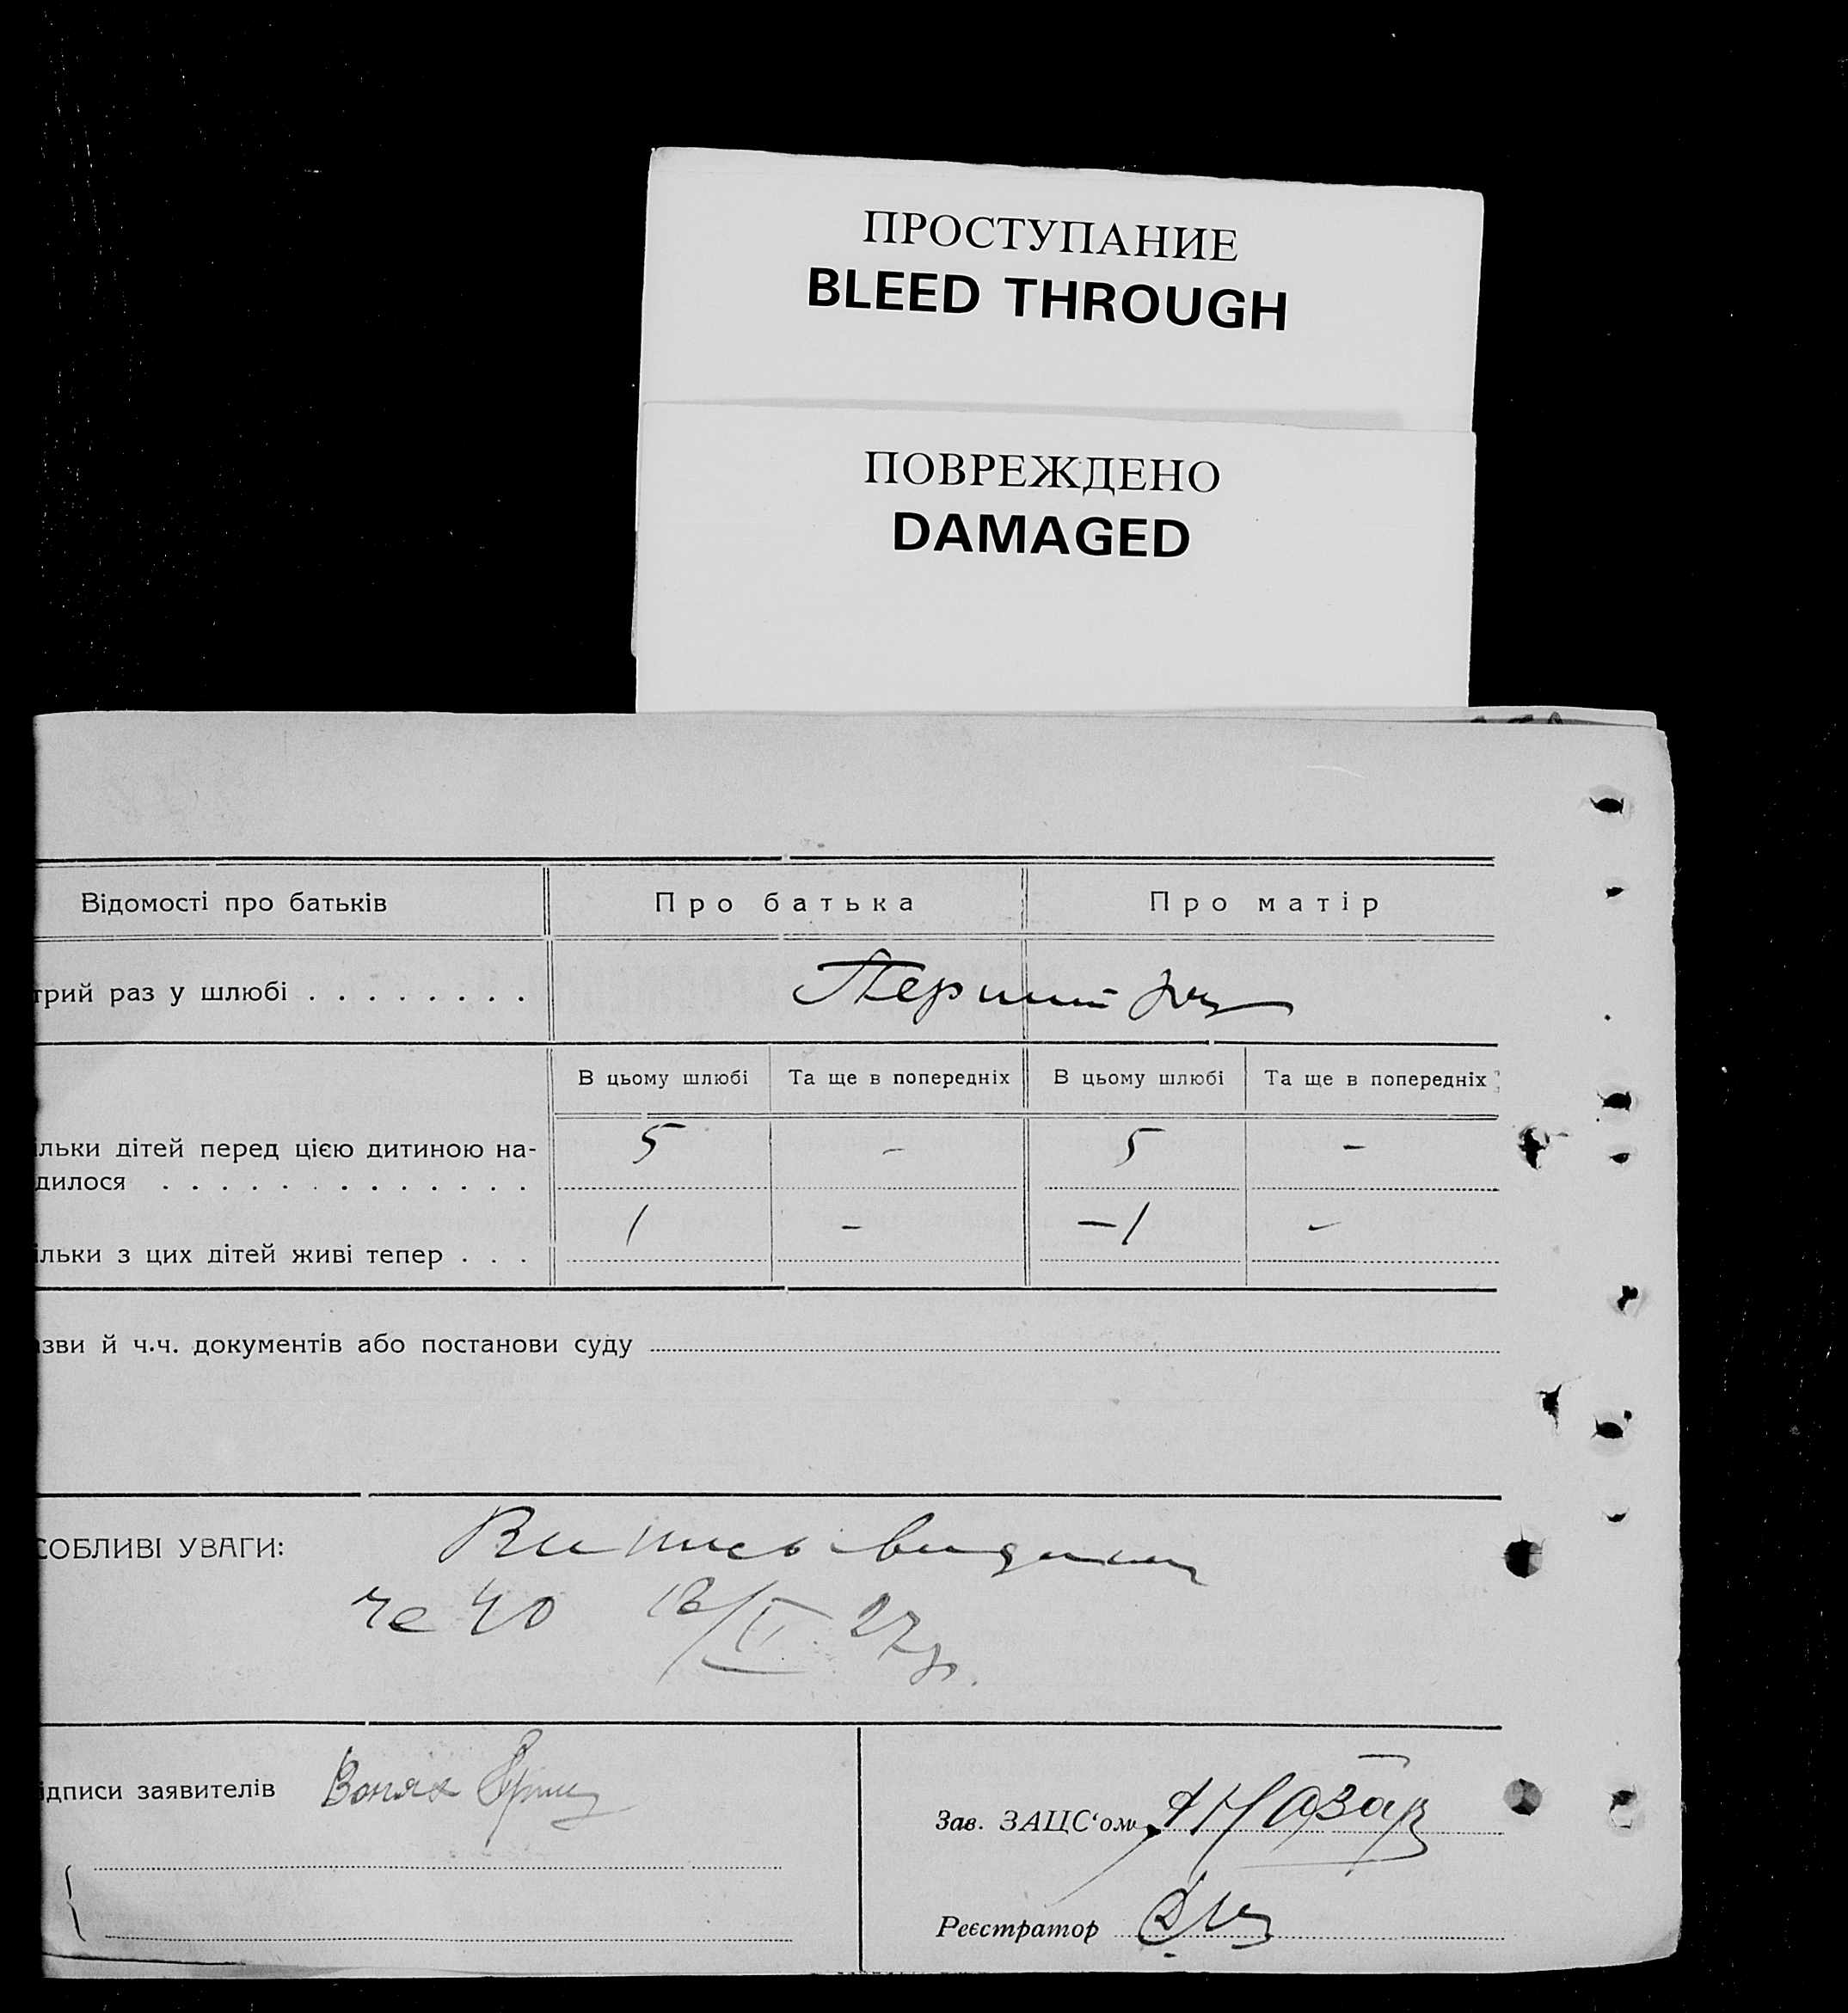 ПРОСТУПАНИЕ
BLEED THROUGH
ПОВРЕЖДЕНО
DAMAGED
Відомості про батьків Про батька Про матір
трий раз у шлюбі . . . . . . . . Перший раз
В цьому шлюбі Та ще в попередніх В цьому шлюбі Та ще в попередніх
ільки дітей перед цією дитиною на- 5 - 5 -
дилося . . . . . . . . . . . . .
1 - -1 -
ільки з цих дітей живі тепер . . .
зви й ч.ч. документів або постанови суду
СОБЛИВІ УВАГИ: Виписъ видана
40 27р.
ідписи заявителів
Зав. ЗАЦС'ом
Реєстратор